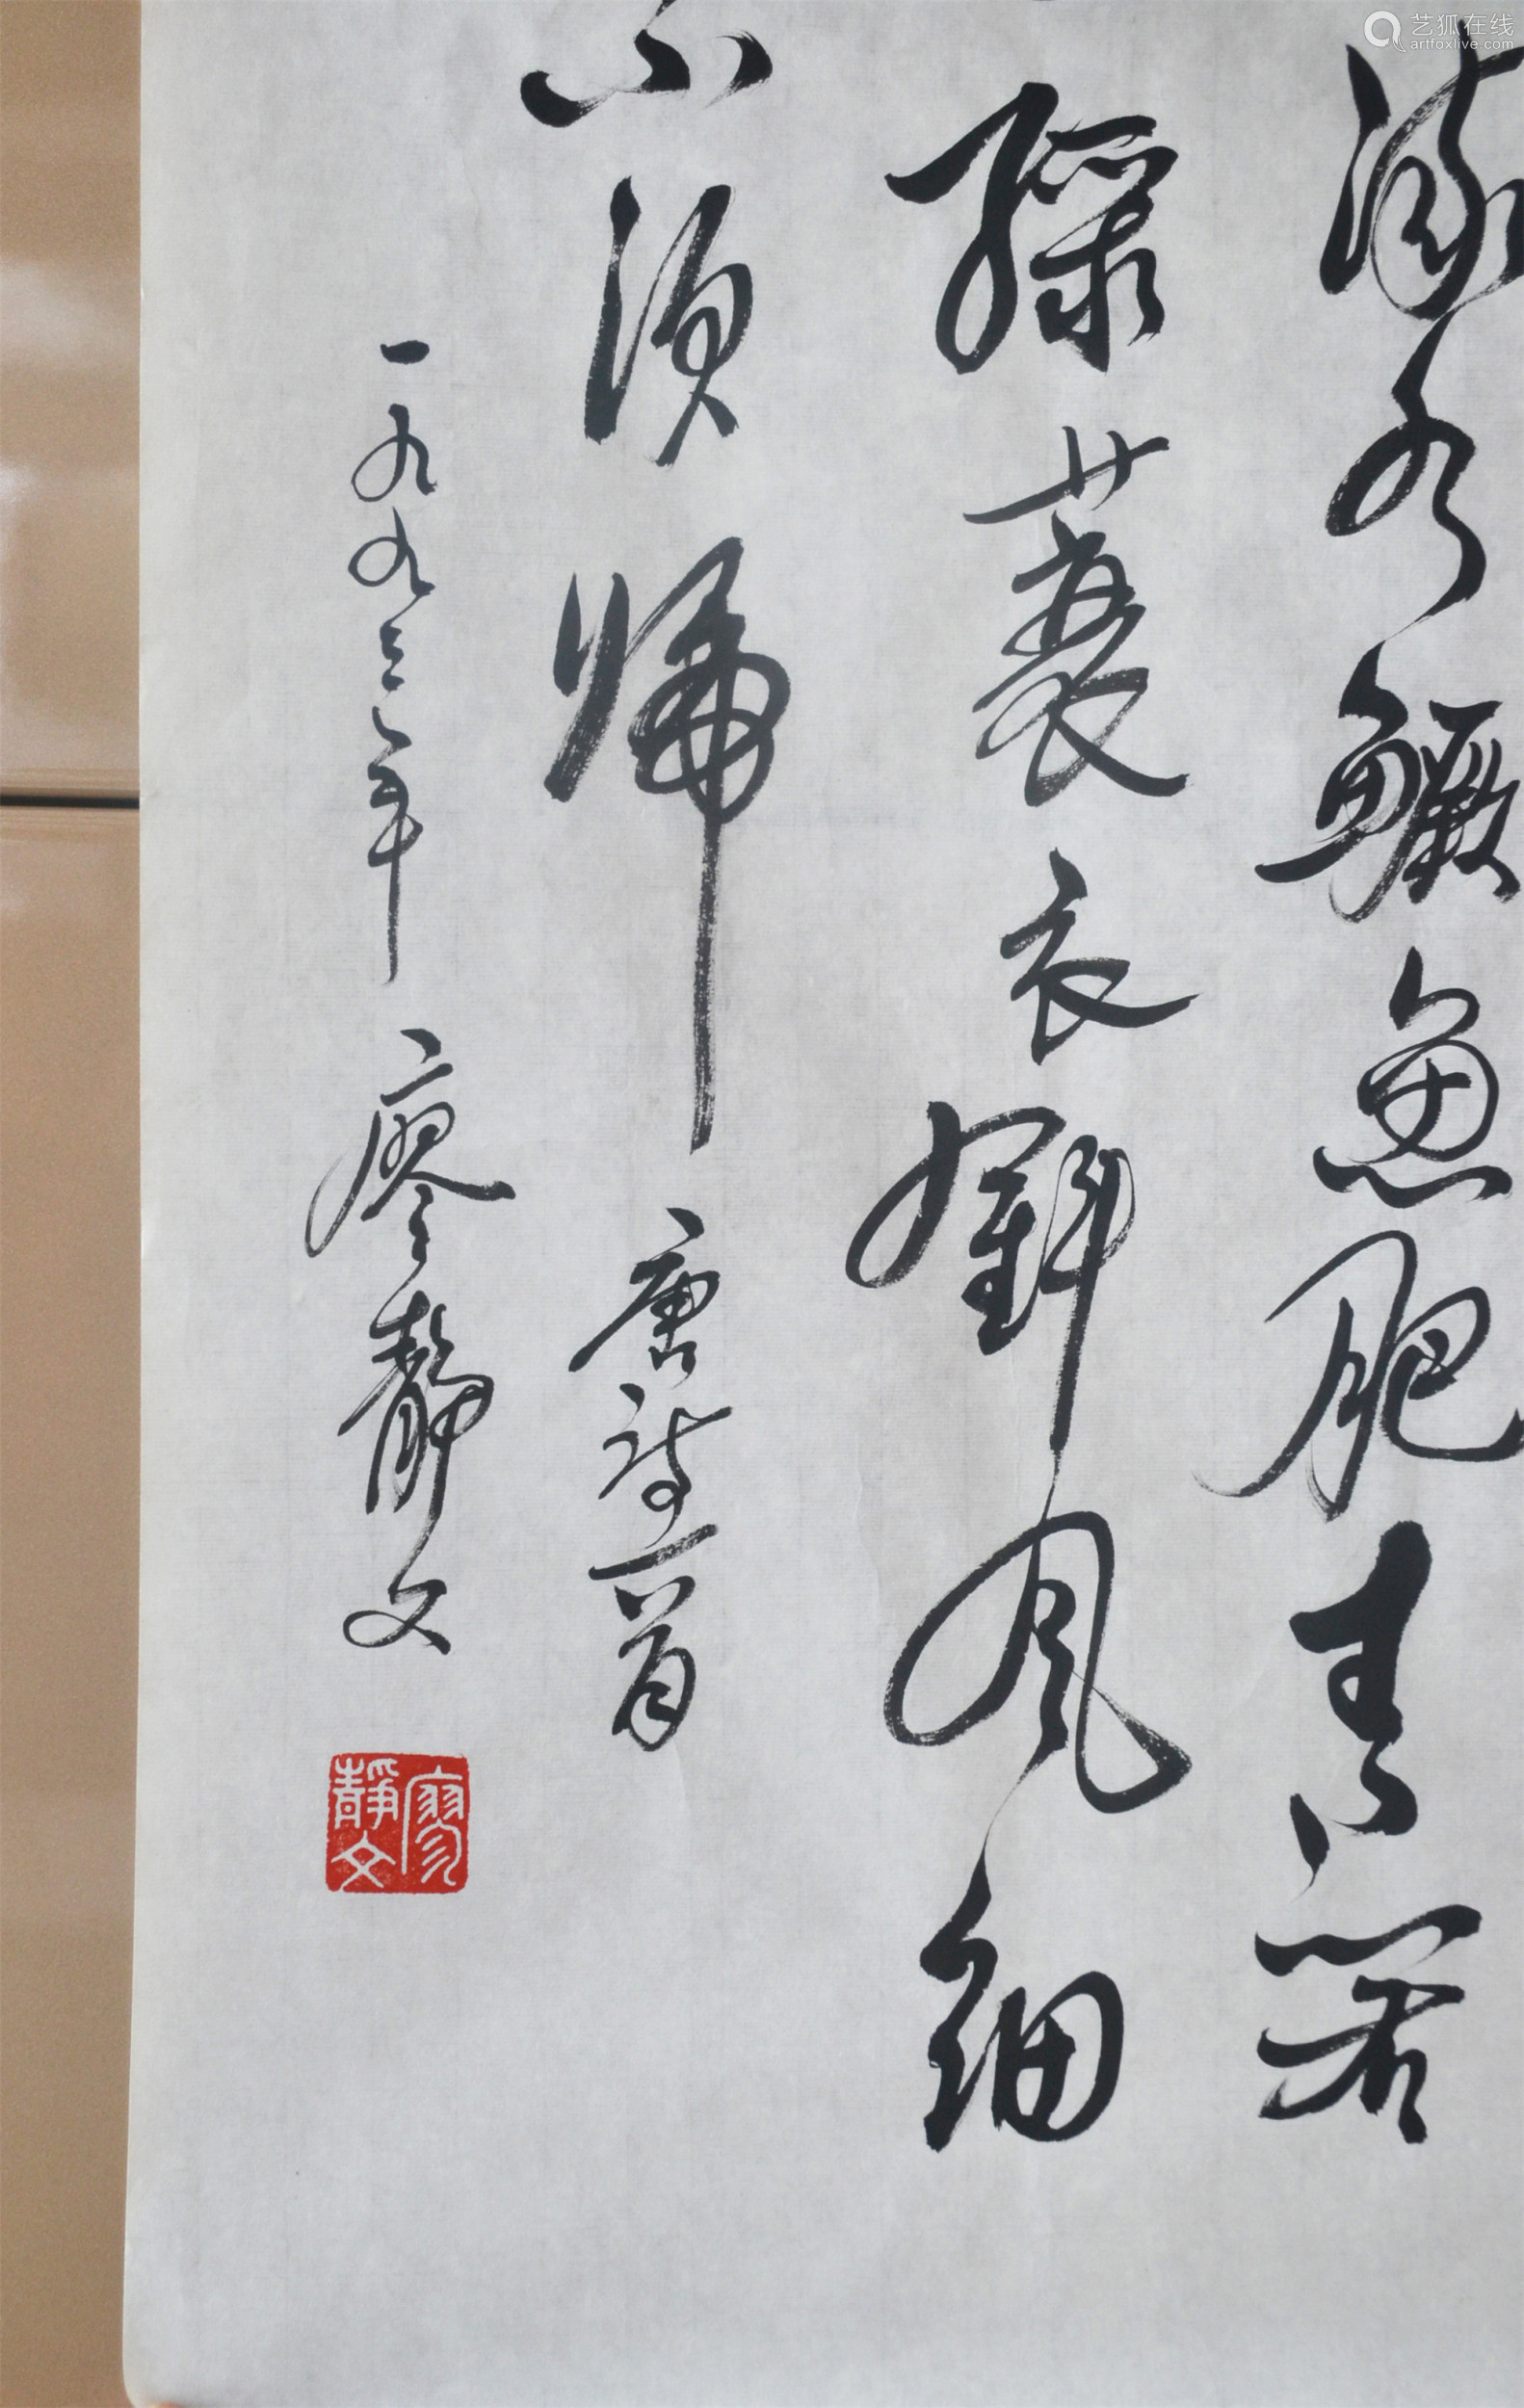 艺狐在线
artfoxlive.com
流水鱖魚肥青箬
緑蓑衣斜风細
不須帰 唐诗一首
一九九三年 廖静文
廖靜文